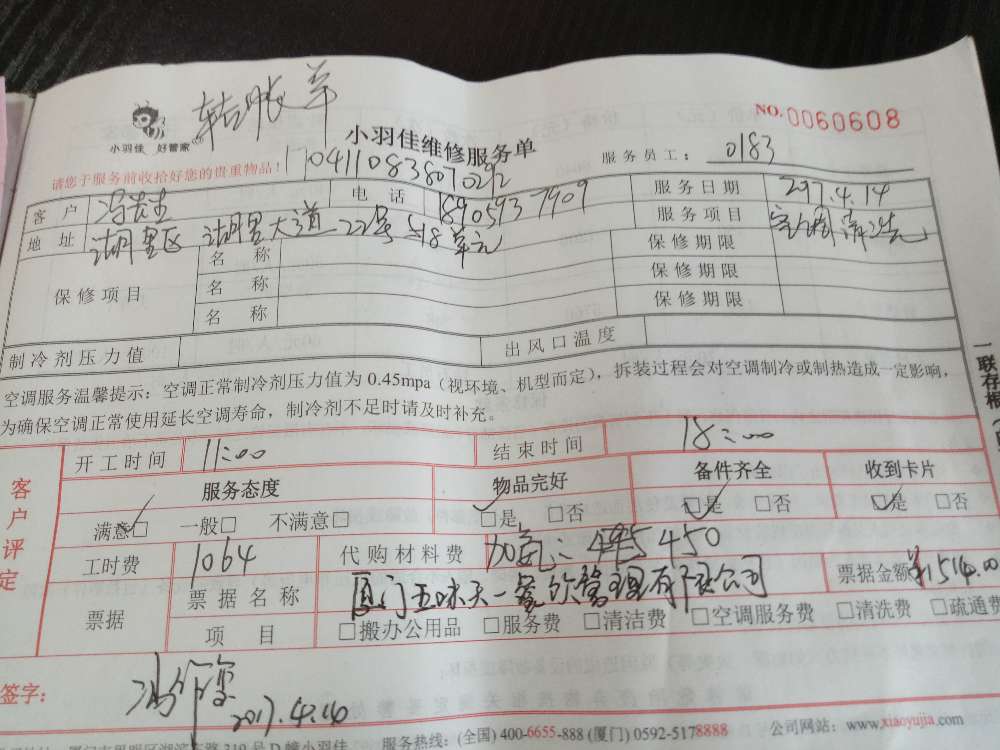 转账单
NO.0060608
小羽佳 好管家
小羽佳维修服务单
请您于服务前收拾好您的贵重物品！
服务员工： 0183
客户 电话 服务日期
地址 湖里区 湖里大道22号518单元 服务项目
保修项目 名称 保修期限
名称 保修期限
名称 保修期限
制冷剂压力值 出风口温度
空调服务温馨提示：空调正常制冷剂压力值为 0.45mpa（视环境、机型而定），拆装过程会对空调制冷或制热造成一定影响，
为确保空调正常使用延长空调寿命，制冷剂不足时请及时补充。
一联存根
客户评定
开工时间 11:00 结束时间 18:00
服务态度 物品完好 备件齐全 收到卡片
满意□ 一般□ 不满意□ □是 □否 □是 □否 □是 □否
工时费 1064 代购材料费 加氟: 450
票据 票据名称 厦门五味天一餐饮管理有限公司 票据金额 1514.00
项目 □搬办公用品 □服务费 □清洁费 □空调服务费 □清洗费 □疏通费
签字：
服务热线：(全国) 400-6655-888 (厦门) 0592-5178888 公司网站：www.xiaoyujia.com